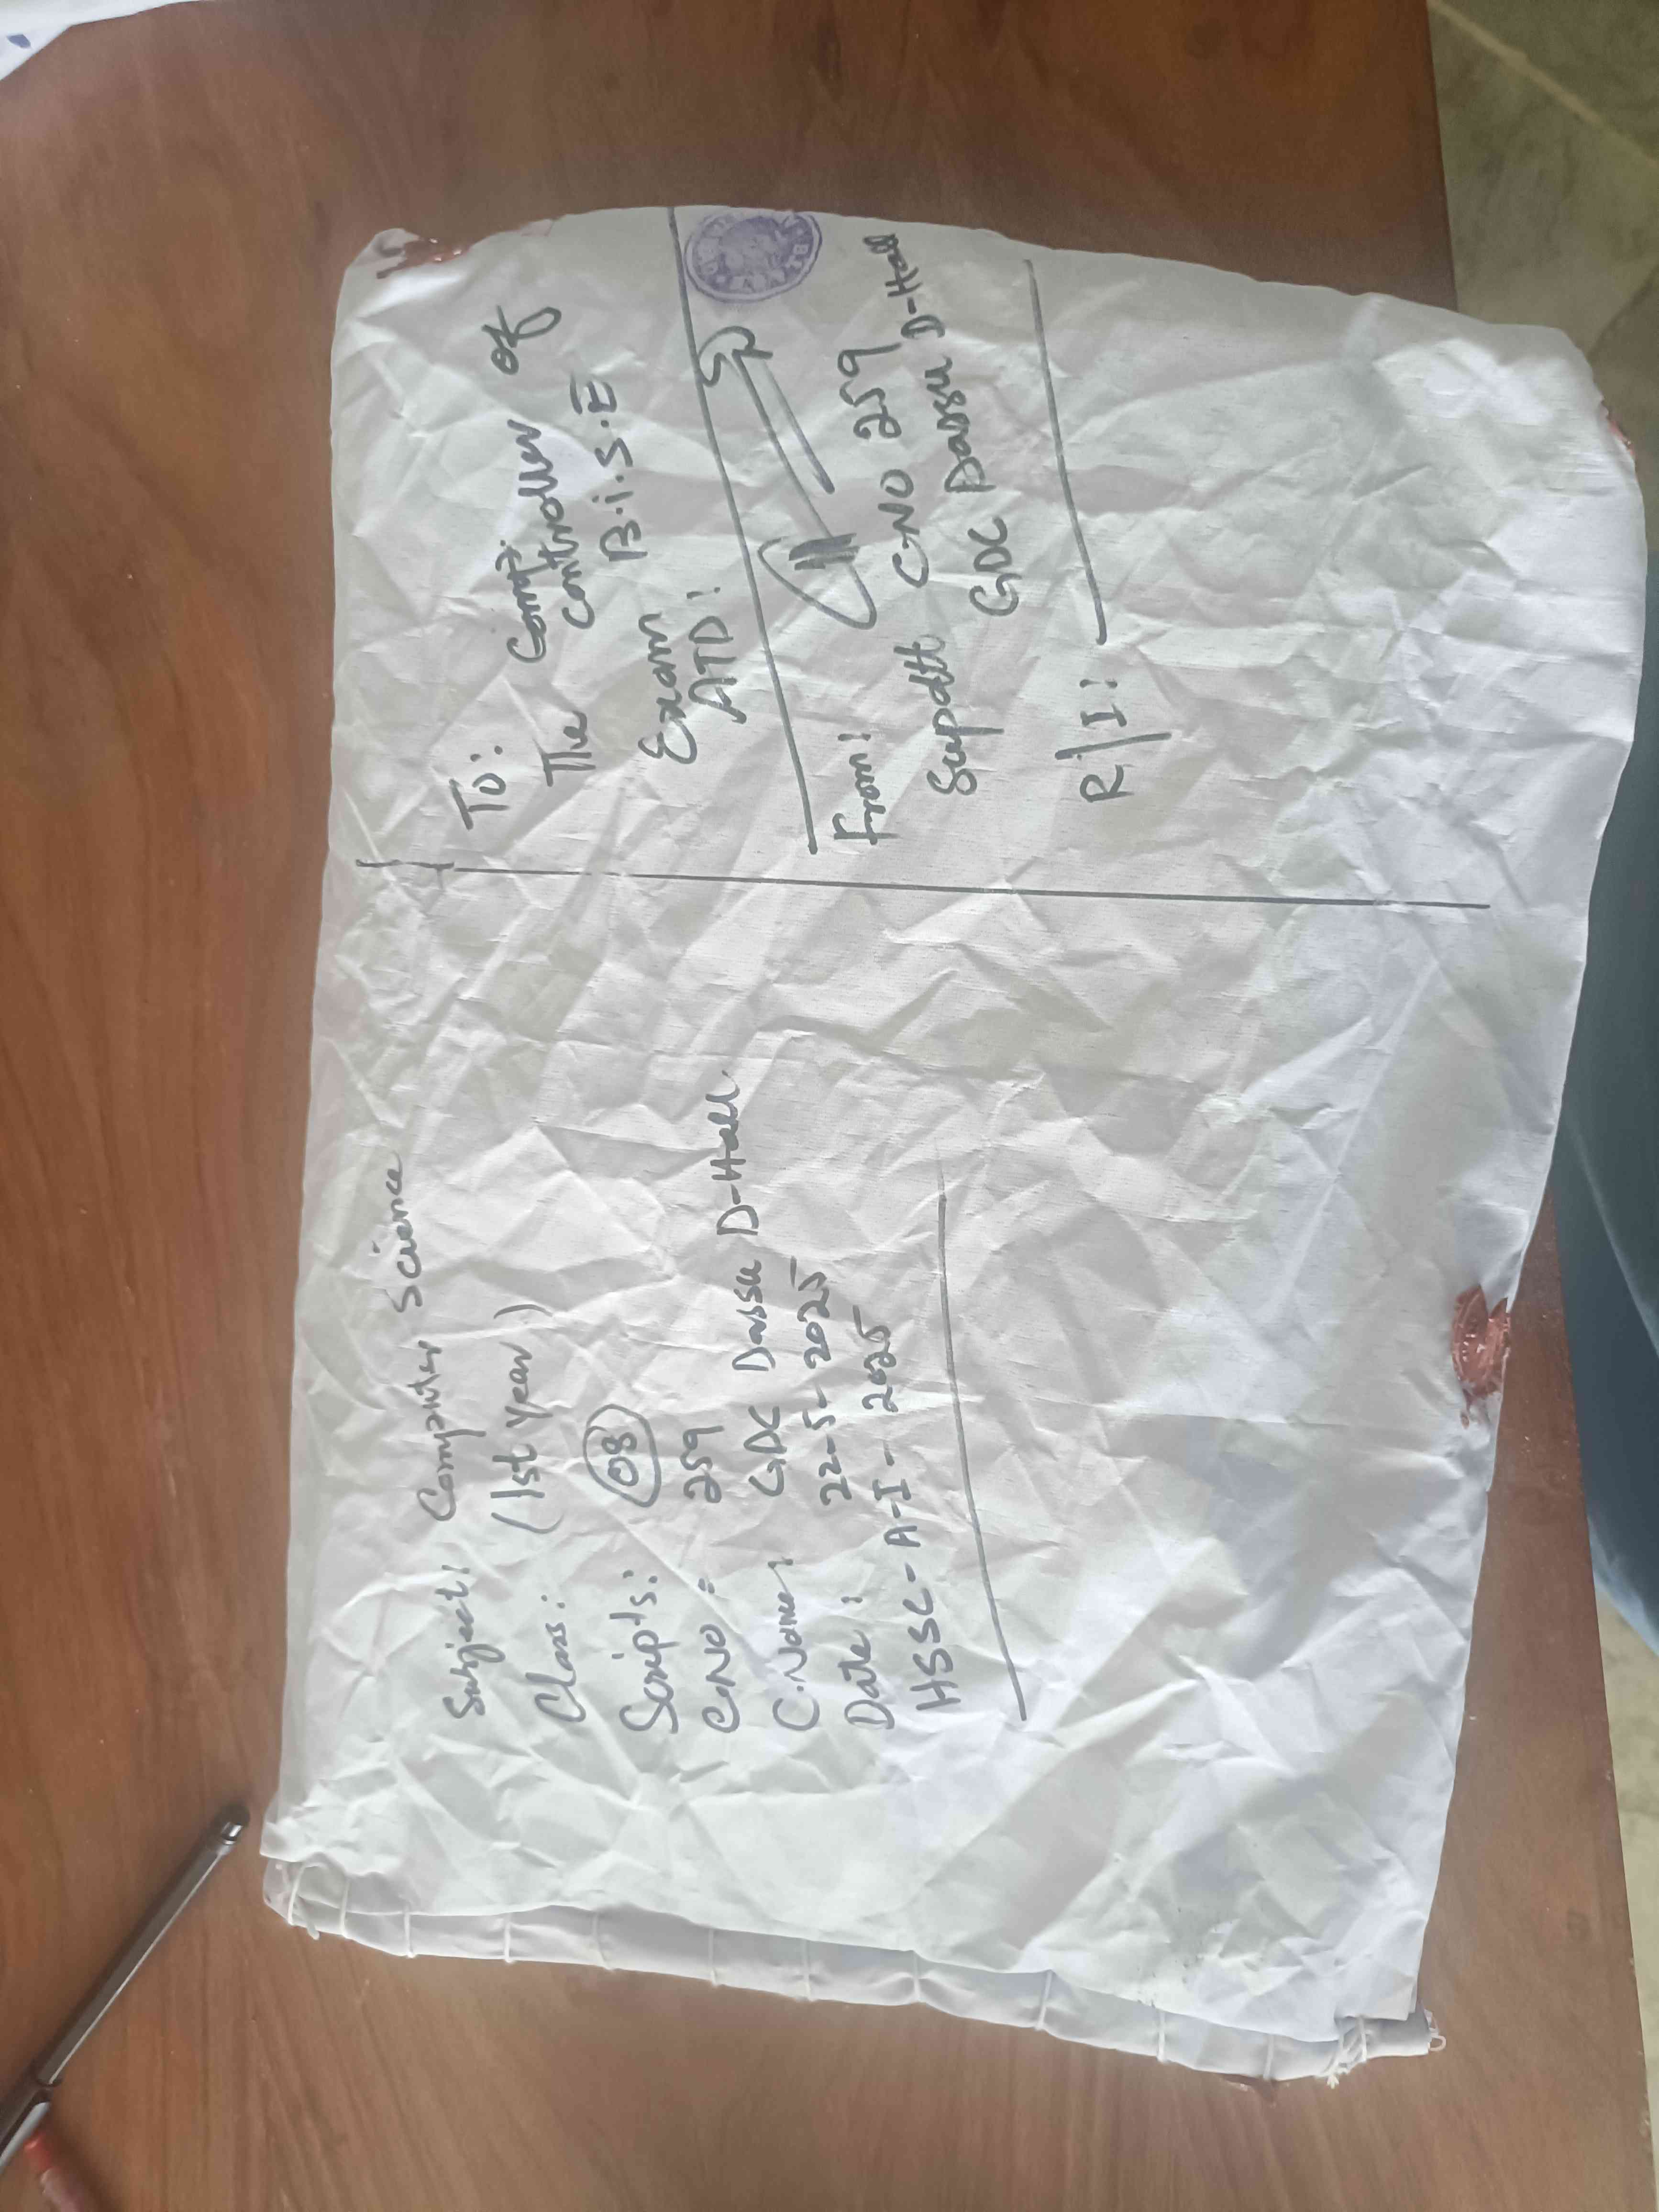 Subject: Computer Science
Class: (1st year)
Scripts: 08
C.NO = 259
C.Name: GDC Dassu D-Hall
Date: 22-5-2025
HSSC-A-I-2025
To:
The Controller of
Exam B.i.S.E
ATD:
From:
Supdtt C-NO 259
GDC Dassu D-Hall
R/I: